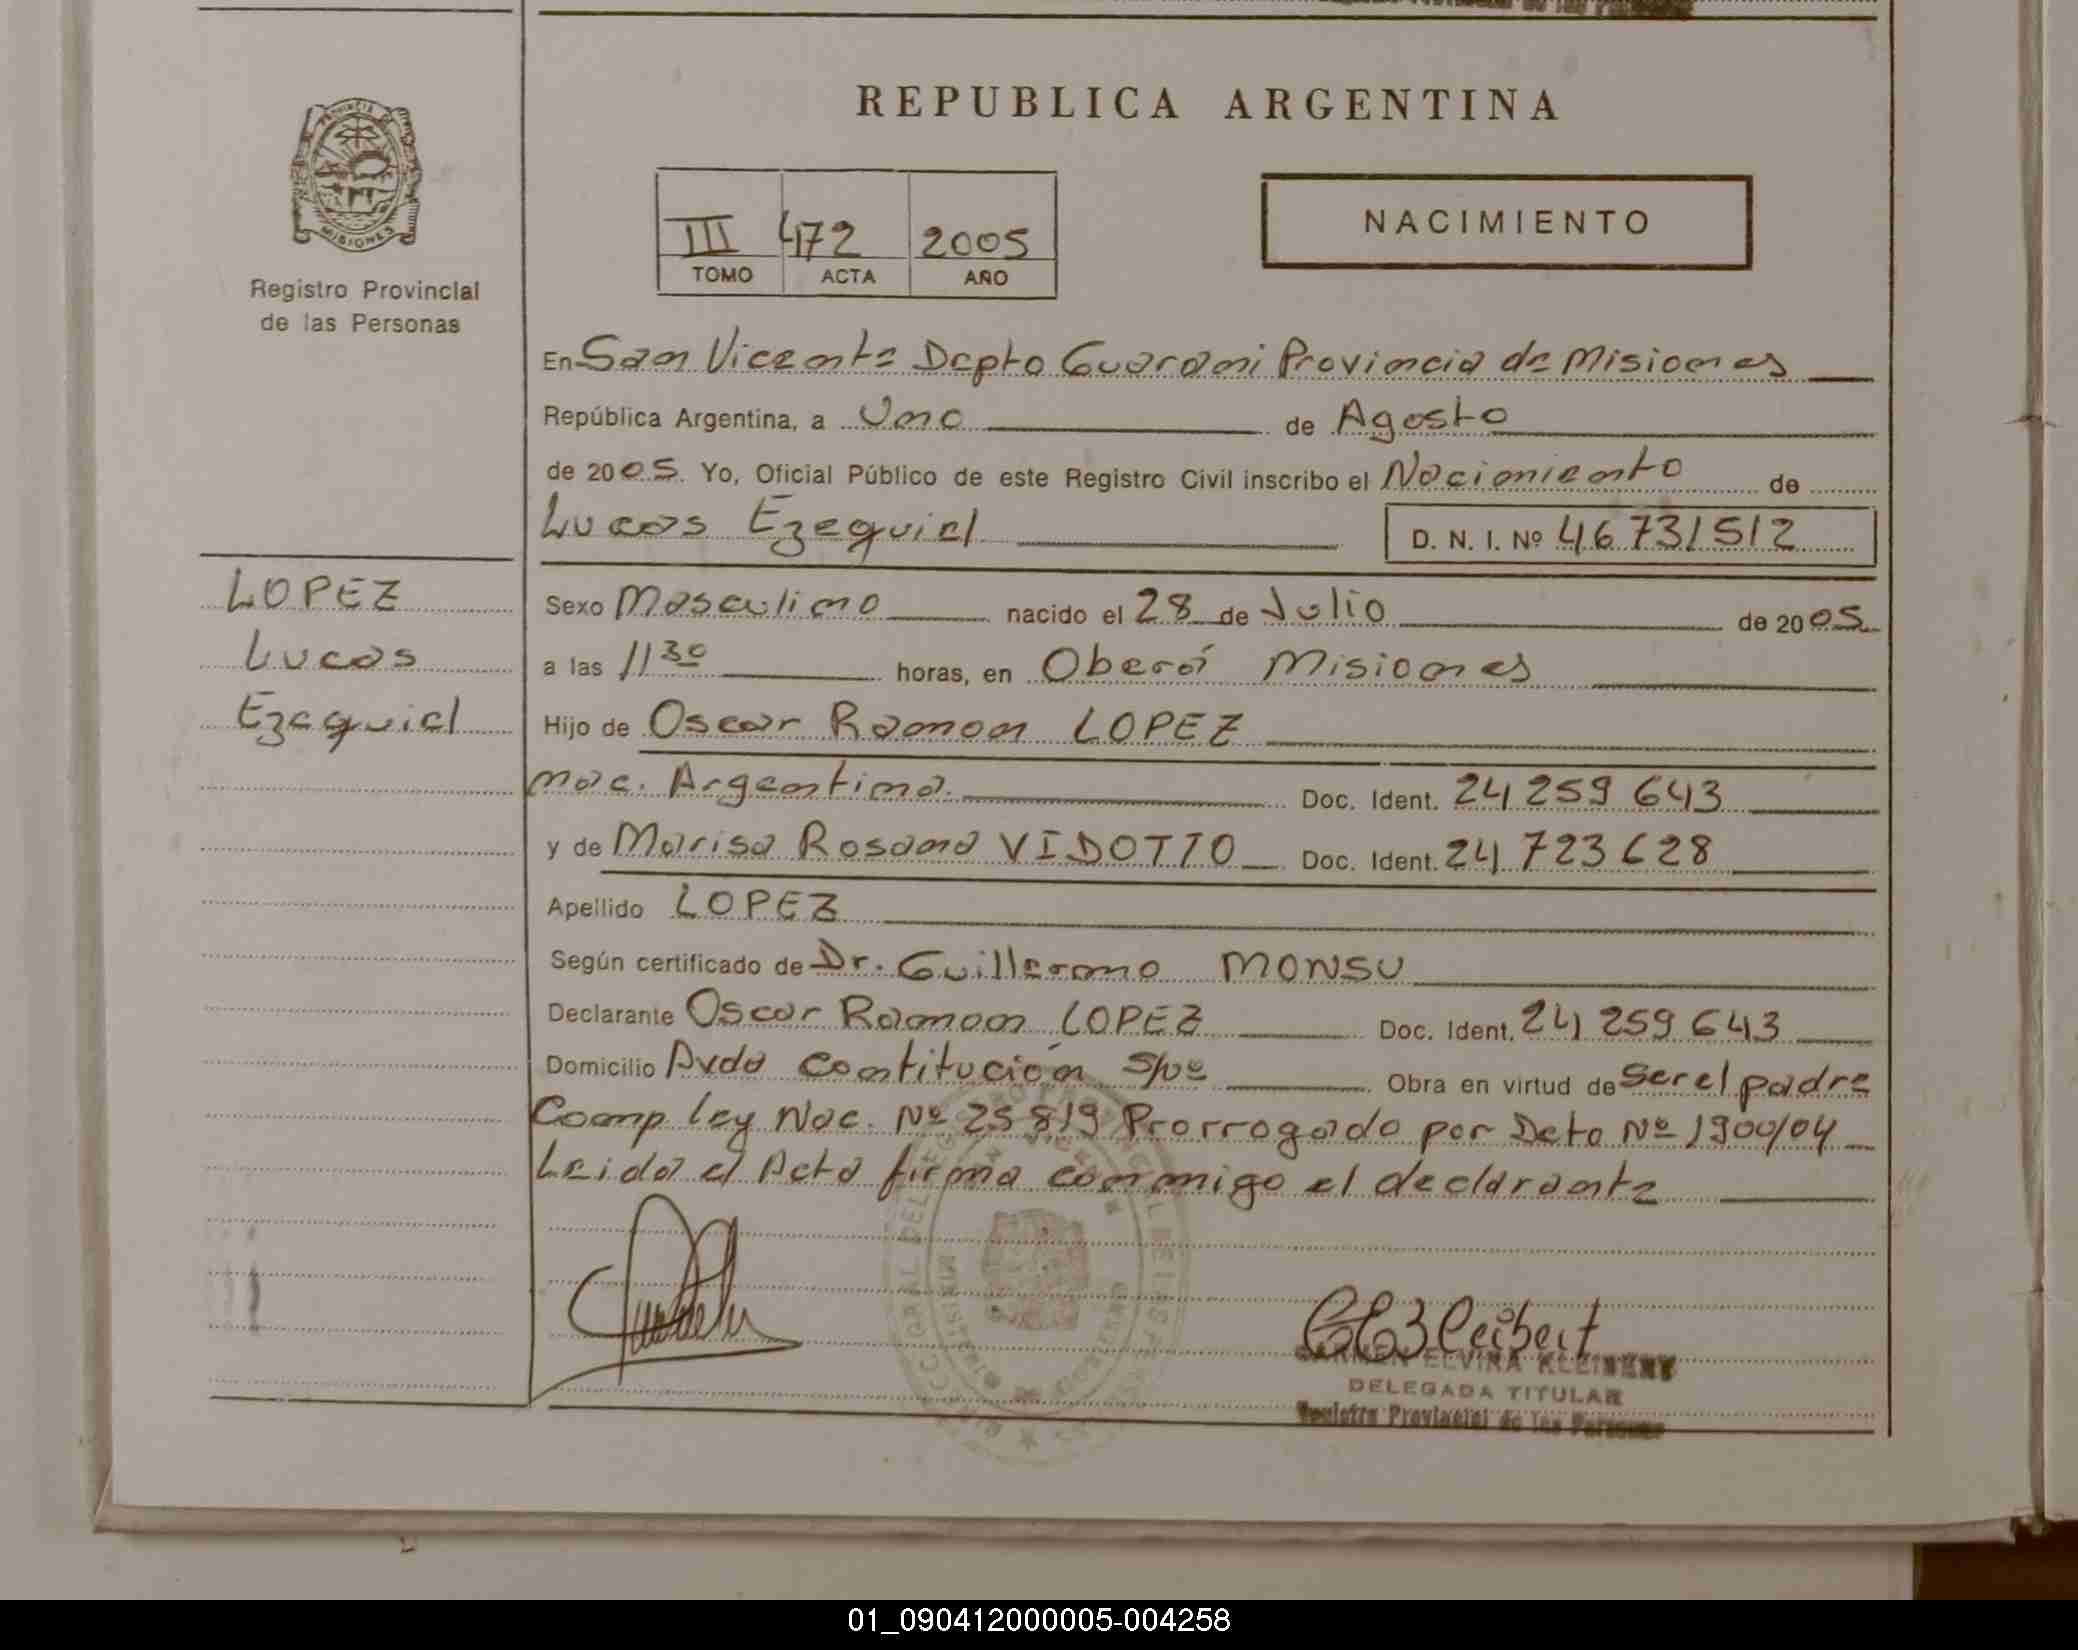 REPUBLICA ARGENTINA
PROVINCIA DE
MISIONES
Registro Provincial
de las Personas
III 472 2005
TOMO ACTA AÑO
NACIMIENTO
En San Vicente Depto Guarani Provincia de Misiones
República Argentina, a Uno de Agosto
de 2005 Yo, Oficial Público de este Registro Civil inscribo el Nacimiento de
Lucas Ezequiel D. N. I. Nº 46731512
LOPEZ
Lucas
Ezequiel
Sexo Masculino nacido el 28 de Julio de 2005
a las 11 30 horas, en Oberá Misiones
Hijo de Oscar Ramon LOPEZ
nac. Argentina. Doc. Ident. 24 259 643
y de Marisa Rosana VIDOTTO Doc. Ident. 24 723 628
Apellido LOPEZ
Según certificado de Dr. Guillermo MONSU
Declarante Oscar Ramon LOPEZ Doc. Ident. 24 259 643
Domicilio Avda Contitución S/nº Obra en virtud de Ser el padre
Comp ley Nac. Nº 25819 Prorrogado por Deto Nº 1900/04
Leida el Acta firma conmigo el declarante
CARMEN ELVIRA KLEIBERT
DELEGADA TITULAR
Registro Provincial de las Personas
01_090412000005-004258